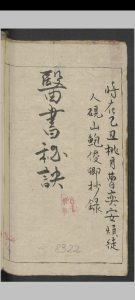 時在乙丑桃月曹奕安頌徒
人硯山鮑俊卿抄錄
醫書秘訣
8322